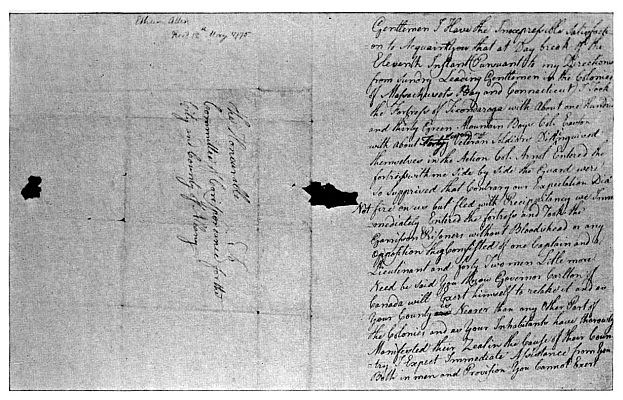 Ethan Allen
Recd 12th May 1775
To
The Honorable
Committee of Corrispondence for the
City and County of Albany
Gentlemen I Have the Inexpressible Satisfacti
on to Acquaint you that at Day break of the
Eleventh Instant Pursuant to my Directions
from Sundry Leading Gentlemen in the Colonies
of Massachusets Bay and Connecticut I Took
the Fortress of Ticondaroga with About one Hundred
and thirty Green Mountain Boys Col. Easton
with about Forty Veteran Soldiers Distinguised
themselves in the Action Col. Arnol Entered the
fortress with me Side by Side the Guard were
So Supprised that Contrary our Expectation Did
Not fire on us but fled with Precipitancy we Imm
ediately Entered the fortress and Took the
Garrison Prisoners without Bloodshead or any
Opposition they Consisted of one Captain and a
Lieutenant and forty Two men Little more
Need be Said You Know Governor Carlton of
Canada will Exert himself to retake it and as
Your County is Nearer than any Other Part of
the Colonies and as Your Inhabitants have thoroughly
Manifested their Zeal in the Cause of their Coun
try I Expect Immediate Assistance from You
Both in men and Provision You Cannot Exert